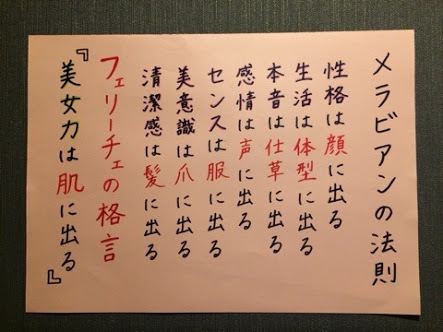 メラビアンの法則
性格は顔に出る
生活は体型に出る
本音は仕草に出る
感情は声に出る
センスは服に出る
美意識は爪に出る
清潔感は髪に出る
フェリーチェの格言
『美女力は肌に出る』